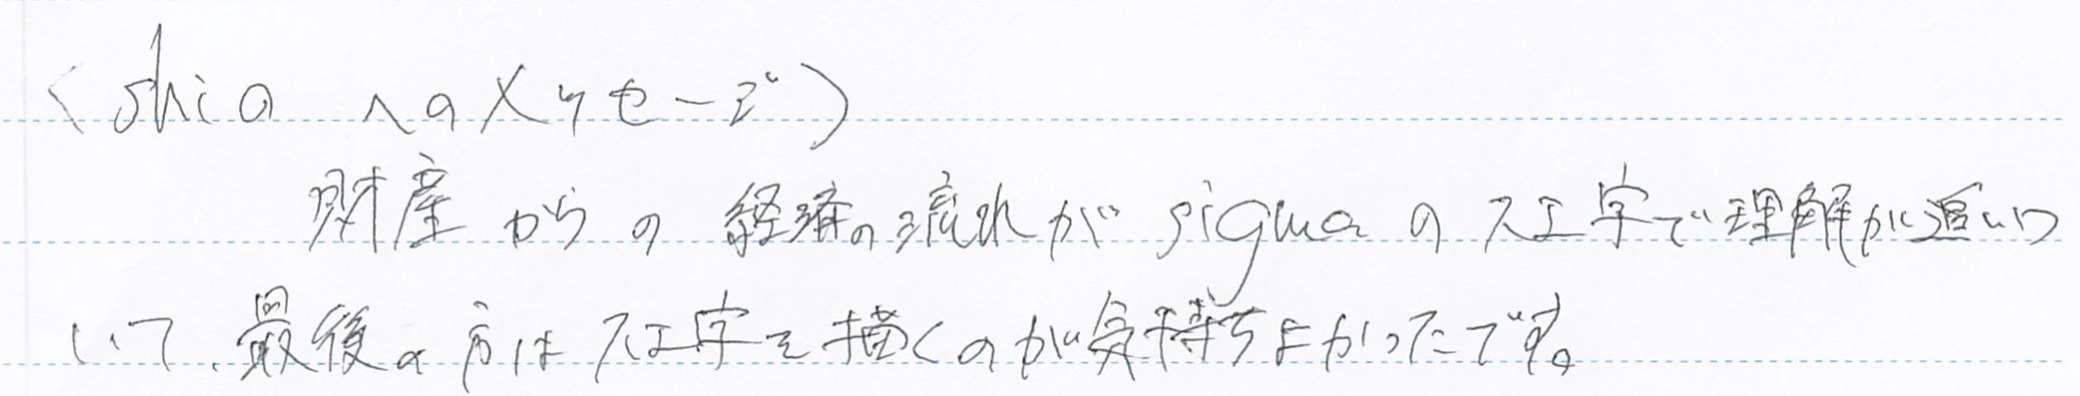 〈shiaへのメッセージ〉
財産からの経済の流れがsigmaの大工字で理解が追いつ
いて、最後の方は大工字を描くのが気持ちよかったです。